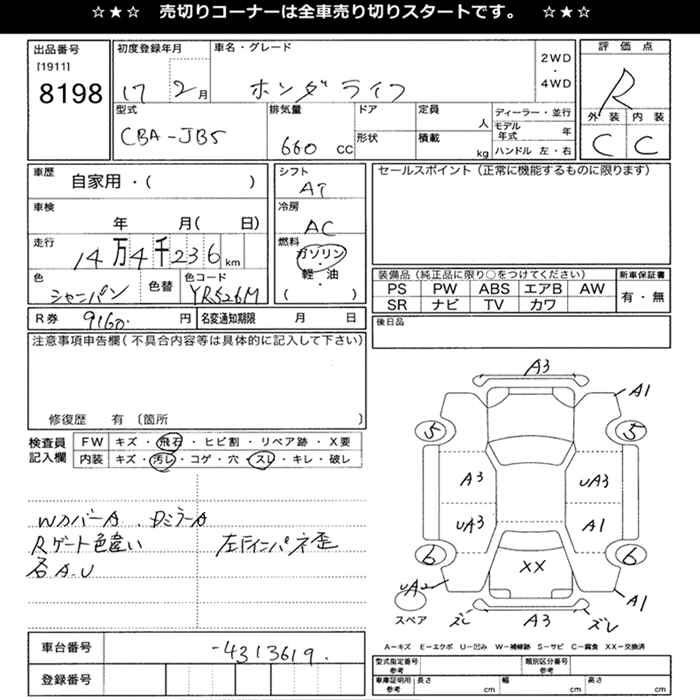 ☆★☆ 売切りコーナーは全車売り切りスタートです。 ☆★☆
出品番号
[1911]
8198
初度登録年月
17 2月
車名・グレード
ホンダ ライフ
2WD
・
4WD
評価点
R
外装 内装
C C
型式
CBA-JB5
排気量
660 cc
ドア
形状
定員
人
積載
kg
ディーラー・並行
モデル年式 年
ハンドル 左・右
車歴
自家用・( )
車検
年 月( 日)
走行
14万4千236km
色
シャンパン
色替
色コード
YR526M
シフト
AT
冷房
AC
燃料
ガソリン
・
軽・油
( )
セールスポイント(正常に機能するものに限ります)
装備品(純正品に限り○をつけてください)
PS PW ABS エアB AW
SR ナビ TV カワ
新車保証書
有・無
R券 9160. 円
名変通知期限 月 日
後日品
注意事項申告欄(不具合内容等は具体的に記入して下さい)
修復歴 有 〔箇所 〕
検査員記入欄
FW キズ・飛石・ヒビ割・リペア跡・X要
内装 キズ・汚レ・コゲ・穴・スレ・キレ・破レ
WカバーA. DミラーA
Rゲート色違い 左Fインパネ歪
各A.U
A3
A1
5 5
A3 UA3
UA3 A1
6 6
XX
UA2
A1
スペア
ズレ A3 ズレ
A-キズ E-エクボ U-凹み W-補修跡 S-サビ C-腐食 XX-交換済
車台番号 -4313619.
登録番号
型式指定番号 参考
類別区分番号 参考
車庫証明用 参考
長さ cm 幅 cm 高さ cm